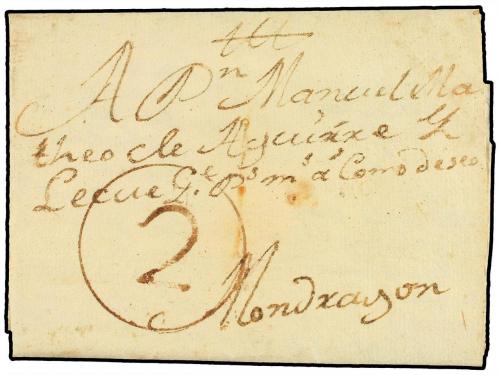 A Dn Manuel Ma
theo de Aguirre y
Lecue G.e Ds m.s a.s Como deseo
2
Mondragon